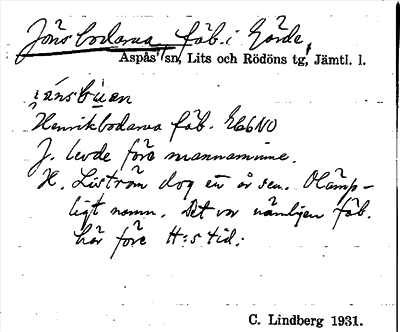 Jönsbodarna fäb. i Gärde,
Aspås sn, Lits och Rödöns tg, Jämtl. l.
Henrikbodarna fäb.
J. levde före mannaminne.
H. Liström dog en år sen. Olämp-
ligt namn. Det var nämligen fäb.
här före H:s tid.
C. Lindberg 1931.